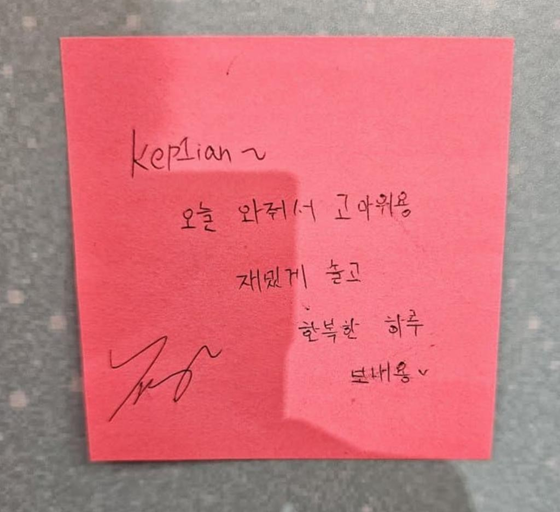 Kep1ian~
오늘 와줘서 고마워용
재밌게 놀고
행복한 하루
보내용